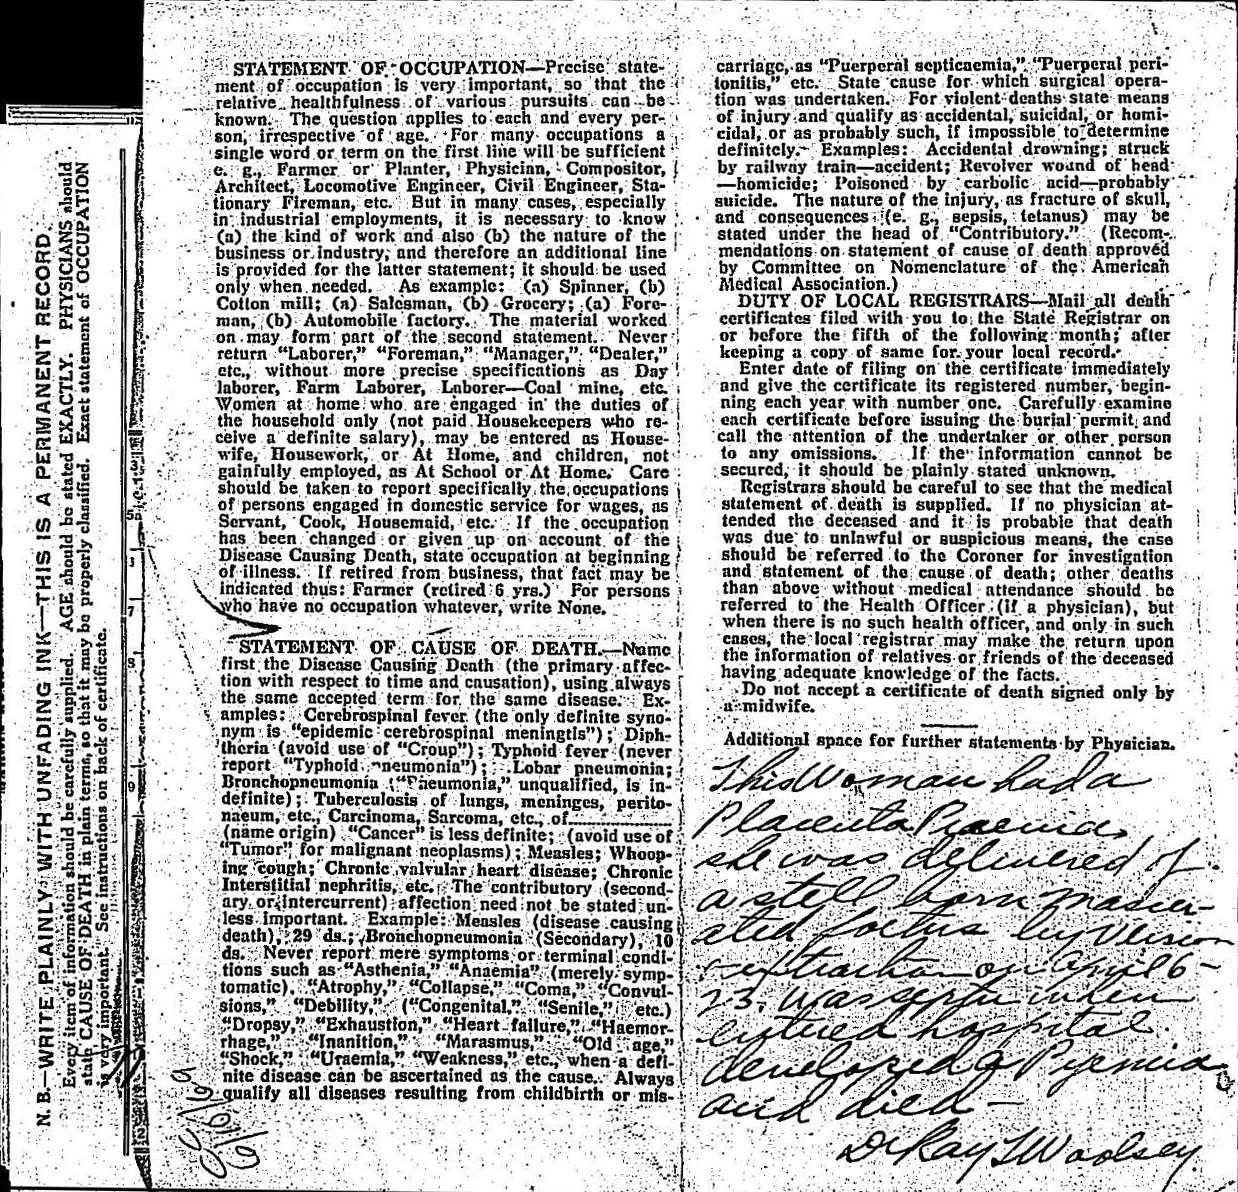 N. B.—WRITE PLAINLY WITH UNFADING INK—THIS IS A PERMANENT RECORD.
Every item of information should be carefully supplied. AGE should be stated EXACTLY. PHYSICIANS should
state CAUSE OF DEATH in plain terms, so that it may be properly classified. Exact statement of OCCUPATION
is very important. See instructions on back of certificate.
STATEMENT OF OCCUPATION—Precise state-
ment of occupation is very important, so that the
relative healthfulness of various pursuits can be
known. The question applies to each and every per-
son, irrespective of age. For many occupations a
single word or term on the first line will be sufficient
e. g., Farmer or Planter, Physician, Compositor,
Architect, Locomotive Engineer, Civil Engineer, Sta-
tionary Fireman, etc. But in many cases, especially
in industrial employments, it is necessary to know
(a) the kind of work and also (b) the nature of the
business or industry, and therefore an additional line
is provided for the latter statement; it should be used
only when needed. As example: (a) Spinner, (b)
Cotton mill; (a) Salesman, (b) Grocery; (a) Fore-
man, (b) Automobile factory. The material worked
on may form part of the second statement. Never
return "Laborer," "Foreman," "Manager," "Dealer,"
etc., without more precise specifications as Day
laborer, Farm Laborer, Laborer—Coal mine, etc.
Women at home who are engaged in the duties of
the household only (not paid Housekeepers who re-
ceive a definite salary), may be entered as House-
wife, Housework, or At Home, and children, not
gainfully employed, as At School or At Home. Care
should be taken to report specifically the occupations
of persons engaged in domestic service for wages, as
Servant, Cook, Housemaid, etc. If the occupation
has been changed or given up on account of the
Disease Causing Death, state occupation at beginning
of illness. If retired from business, that fact may be
indicated thus: Farmer (retired 6 yrs.) For persons
who have no occupation whatever, write None.
STATEMENT OF CAUSE OF DEATH.—Name
first the Disease Causing Death (the primary affec-
tion with respect to time and causation), using always
the same accepted term for the same disease. Ex-
amples: Cerebrospinal fever (the only definite syno-
nym is "epidemic cerebrospinal meningitis"); Diph-
theria (avoid use of "Croup"); Typhoid fever (never
report "Typhoid pneumonia"); Lobar pneumonia;
Bronchopneumonia ("Pneumonia," unqualified, is in-
definite); Tuberculosis of lungs, meninges, perito-
naeum, etc., Carcinoma, Sarcoma, etc., of
(name origin) "Cancer" is less definite; (avoid use of
"Tumor" for malignant neoplasms); Measles; Whoop-
ing cough; Chronic valvular heart disease; Chronic
Interstitial nephritis, etc. The contributory (second-
ary or intercurrent) affection need not be stated un-
less important. Example: Measles (disease causing
death), 29 ds.; Bronchopneumonia (Secondary), 10
ds. Never report mere symptoms or terminal condi-
tions such as "Asthenia," "Anaemia" (merely symp-
tomatic), "Atrophy," "Collapse," "Coma," "Convul-
sions," "Debility," ("Congenital," "Senile," etc.)
"Dropsy," "Exhaustion," "Heart failure," "Haemor-
rhage," "Inanition," "Marasmus," "Old age,"
"Shock," "Uraemia," "Weakness," etc., when a defi-
nite disease can be ascertained as the cause. Always
qualify all diseases resulting from childbirth or mis-
carriage, as "Puerperal septicaemia," "Puerperal peri-
tonitis," etc. State cause for which surgical opera-
tion was undertaken. For violent deaths state means
of injury and qualify as accidental, suicidal, or homi-
cidal, or as probably such, if impossible to determine
definitely. Examples: Accidental drowning; struck
by railway train—accident; Revolver wound of head
—homicide; Poisoned by carbolic acid—probably
suicide. The nature of the injury, as fracture of skull,
and consequences (e. g., sepsis, tetanus) may be
stated under the head of "Contributory." (Recom-
mendations on statement of cause of death approved
by Committee on Nomenclature of the American
Medical Association.)
DUTY OF LOCAL REGISTRARS—Mail all death
certificates filed with you to the State Registrar on
or before the fifth of the following month; after
keeping a copy of same for your local record.
Enter date of filing on the certificate immediately
and give the certificate its registered number, begin-
ning each year with number one. Carefully examine
each certificate before issuing the burial permit and
call the attention of the undertaker or other person
to any omissions. If the information cannot be
secured, it should be plainly stated unknown.
Registrars should be careful to see that the medical
statement of death is supplied. If no physician at-
tended the deceased and it is probable that death
was due to unlawful or suspicious means, the case
should be referred to the Coroner for investigation
and statement of the cause of death; other deaths
than above without medical attendance should be
referred to the Health Officer (if a physician), but
when there is no such health officer, and only in such
cases, the local registrar may make the return upon
the information of relatives or friends of the deceased
having adequate knowledge of the facts.
Do not accept a certificate of death signed only by
a midwife.
Additional space for further statements by Physician.
This Woman had a
Placenta Praevia,
she was delivered of
a still born macer-
ated foetus by Version
extraction on april 6-
23. was septic when
entered hospital.
developed a Pyemia
and died—
Dr Ray T Woolsey